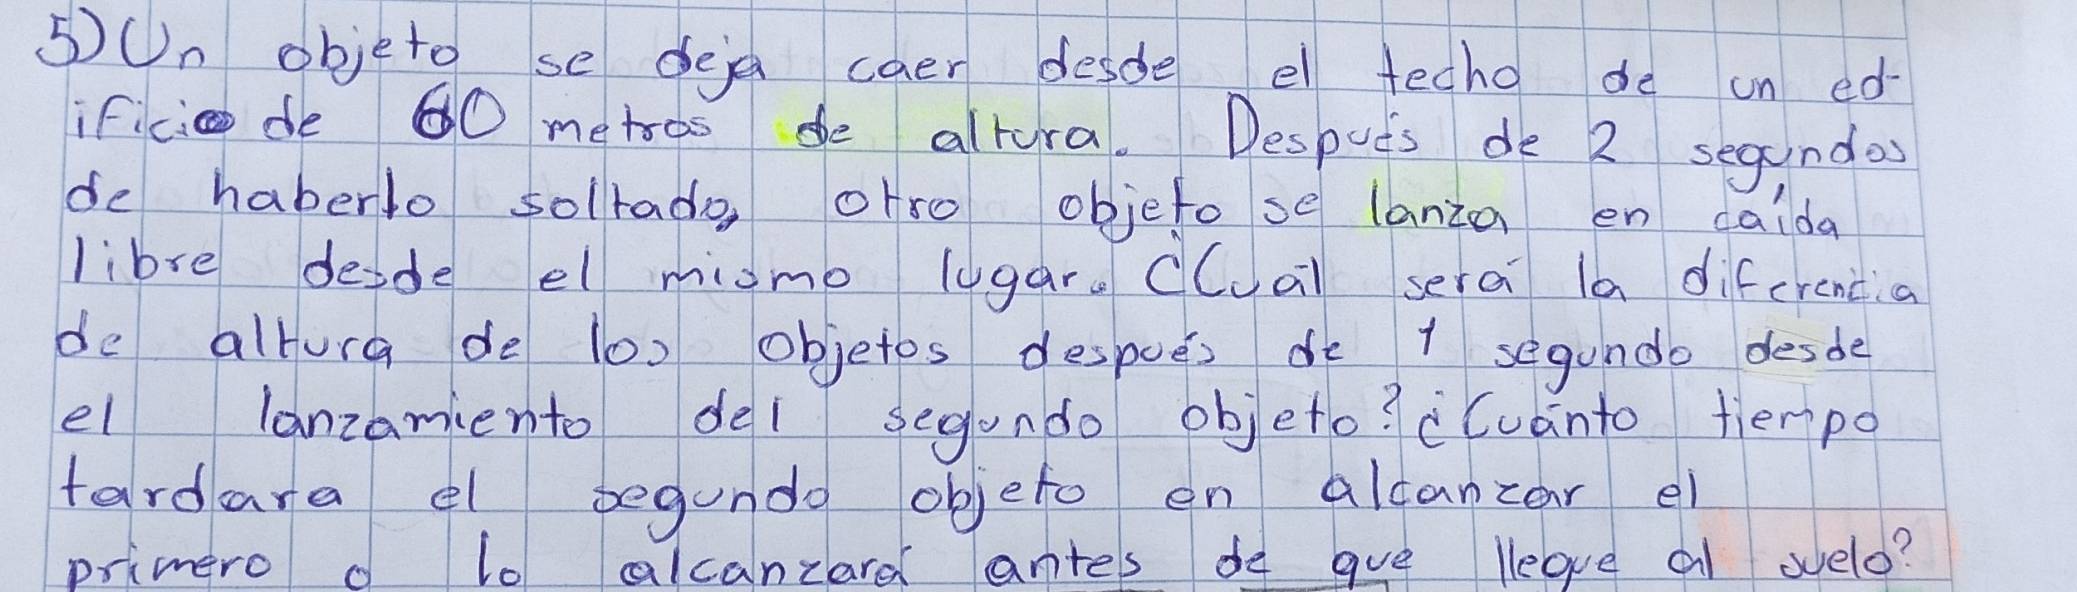 5) Un objeto se deja caer desde el techo de un ed-
ificio de 60 metros de altura. Después de 2 segundos
de haberlo soltado, otro objeto se lanza en caída
libre desde el mismo lugar. ¿Cuál será la diferencia
de altura de los objetos después de 1 segundo desde
el lanzamiento del segundo objeto? ¿Cuánto tiempo
tardara el segundo objeto en alcanzar el
primero o lo alcanzará antes de que llegue al suelo?